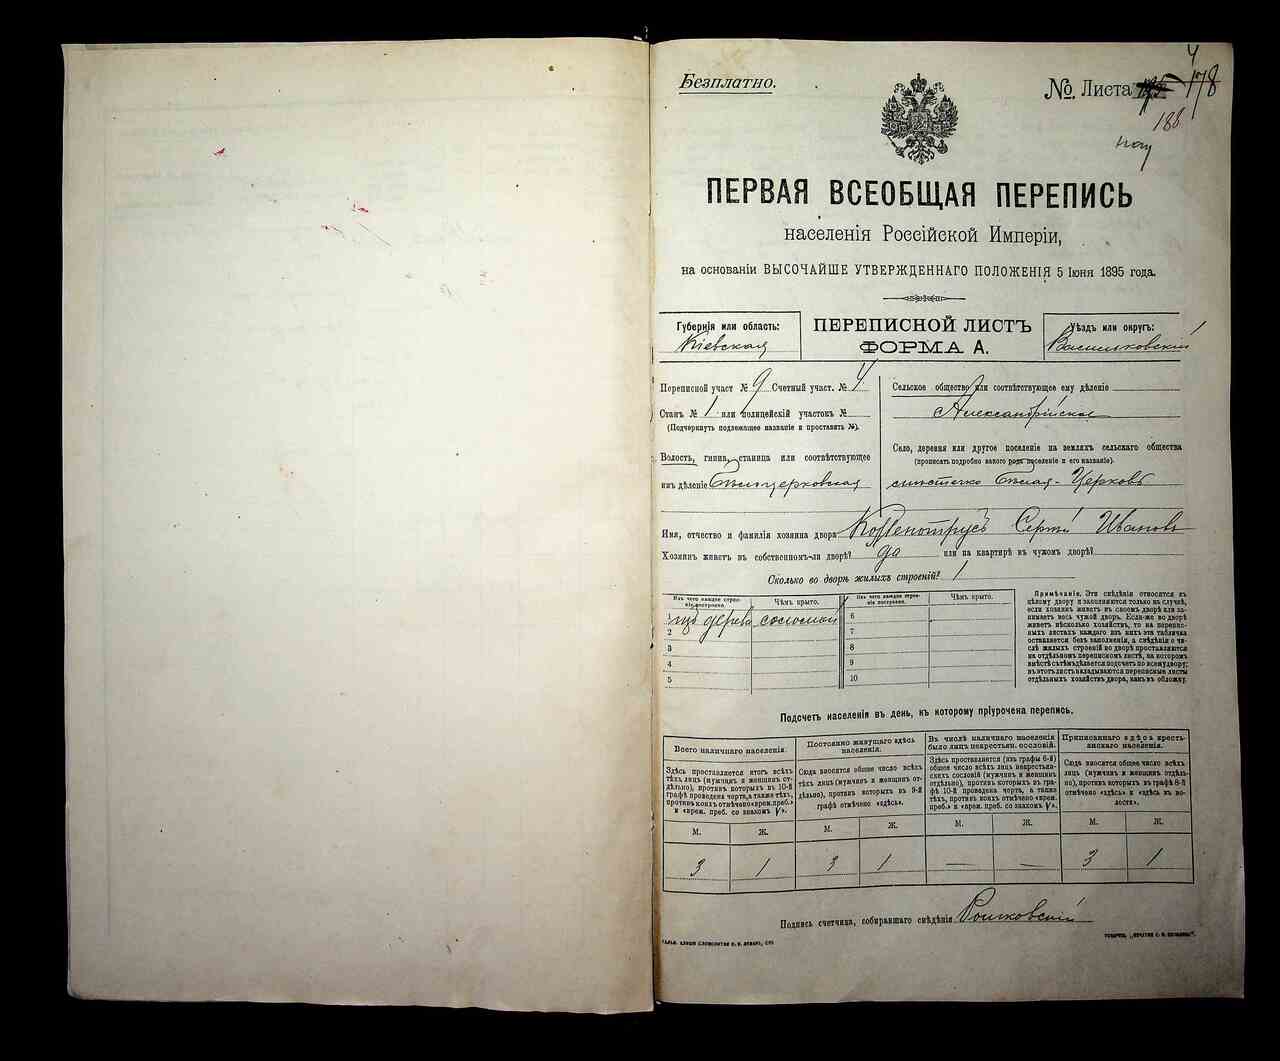 Безплатно.
№ Листа 178
188
ПЕРВАЯ ВСЕОБЩАЯ ПЕРЕПИСЬ
населенія Россійской Имперіи,
на основаніи ВЫСОЧАЙШЕ УТВЕРЖДЕННАГО ПОЛОЖЕНІЯ 5 Іюня 1895 года.
Губернія или область:
Кіевская
ПЕРЕПИСНОЙ ЛИСТЪ
ФОРМА А.
Уѣздъ или округъ:
Васильковскій
Переписной участ № 9 Счетный участ. № 4
Станъ № 1 или полицейскій участокъ №
(Подчеркнуть подлежащее названіе и проставить №).
Волость, гмина, станица или соотвѣтствующее
имъ дѣленіе Бѣлоцерковская
Сельское общество или соотвѣтствующее ему дѣленіе
Александрійское
Село, деревня или другое поселеніе на земляхъ сельскаго общества
(прописать подробно какого рода поселеніе и его названіе).
мѣстечко Бѣлая-Церковь
Имя, отчество и фамилія хозяина двора Сергѣй Ивановъ
Хозяинъ живетъ въ собственномъ-ли дворѣ? да или на квартирѣ въ чужомъ дворѣ?
Сколько во дворѣ жилыхъ строеній? 1
Изъ чего каждое строеніе построено.
Чѣмъ крыто.
Изъ чего каждое строеніе построено.
Чѣмъ крыто.
1 изъ дерева соломой 6
2 7
3 8
4 9
5 10
Примѣчаніе. Эти свѣдѣнія относятся къ
цѣлому двору и заполняются только на случай,
если хозяинъ живетъ въ своемъ дворѣ или за-
нимаетъ весь чужой дворъ. Если-же во дворѣ
живетъ нѣсколько хозяйствъ, то на перепис-
ныхъ листахъ каждаго изъ нихъ эта табличка
оставляется безъ заполненія, а свѣдѣнія о чи-
слѣ жилыхъ строеній во дворѣ проставляются
на отдѣльномъ переписномъ листѣ, на которомъ
вмѣстѣ съ тѣмъ дѣлается подсчетъ по всему двору;
въ этотъ листъ вкладываются переписные листы
отдѣльныхъ хозяйствъ двора, какъ въ обложку.
Подсчетъ населенія въ день, къ которому пріурочена перепись.
Всего наличнаго населенія.
Постоянно живущаго здѣсь
населенія.
Въ числѣ наличнаго населенія
было лицъ некрестьян. сословій.
Приписаннаго здѣсь кресть-
янскаго населенія.
Здѣсь проставляется итогъ всѣхъ
тѣхъ лицъ (мужчинъ и женщинъ от-
дѣльно), противъ которыхъ въ 10-й
графѣ проведена черта, а также тѣхъ,
противъ коихъ отмѣчено «врем. преб.»
и «врем. преб. со знакомъ V».
Сюда вносится общее число всѣхъ
тѣхъ лицъ (мужчинъ и женщинъ от-
дѣльно), противъ которыхъ въ 9-й
графѣ отмѣчено «здѣсь».
Здѣсь проставляется (изъ графы 6-й)
общее число всѣхъ лицъ некрестьян-
скихъ сословій (мужчинъ и женщинъ
отдѣльно), противъ которыхъ въ гра-
фѣ 10-й проведена черта, а также
тѣхъ, противъ коихъ отмѣчено «врем.
преб.» и «врем. преб. со знакомъ V».
Сюда вносится общее число всѣхъ
лицъ (мужчинъ и женщинъ отдѣль-
но), противъ которыхъ въ графѣ 8-й
отмѣчено «здѣсь» и «здѣсь въ во-
лости».
М. Ж. М. Ж. М. Ж. М. Ж.
3 1 3 1 — — 3 1
Подпись счетчика, собиравшаго свѣдѣнія